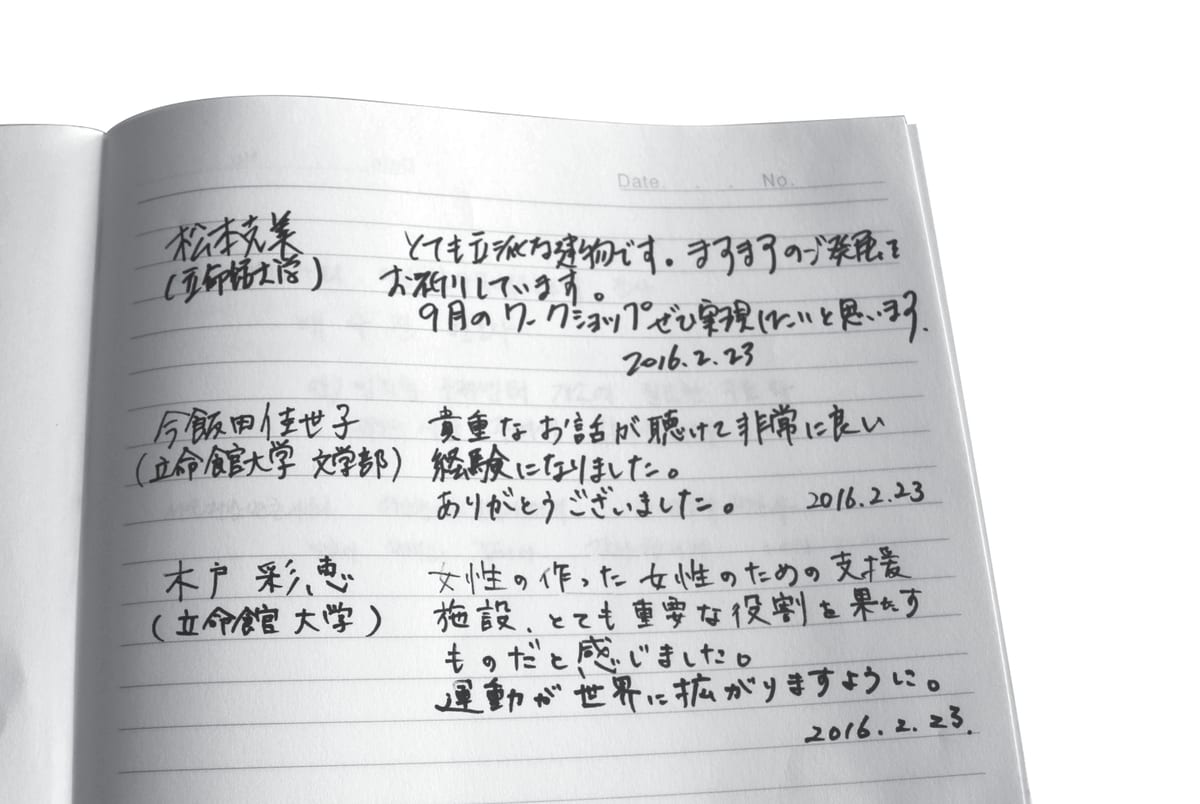 Date. . . . No.
松本克美 とても立派な建物です。ますますのご発展を
(立命館大学) お祈りしています。
9月のワークショップぜひ実現したいと思います.
2016.2.23
今飯田佳世子 貴重なお話が聴けて非常に良い
(立命館大学 文学部) 経験になりました。
ありがとうございました。 2016.2.23
木戸 彩恵 女性の作った女性のための支援
(立命館 大学) 施設、とても重要な役割を果たす
ものだと感じました。
運動が世界に拡がりますように。
2016.2.23.